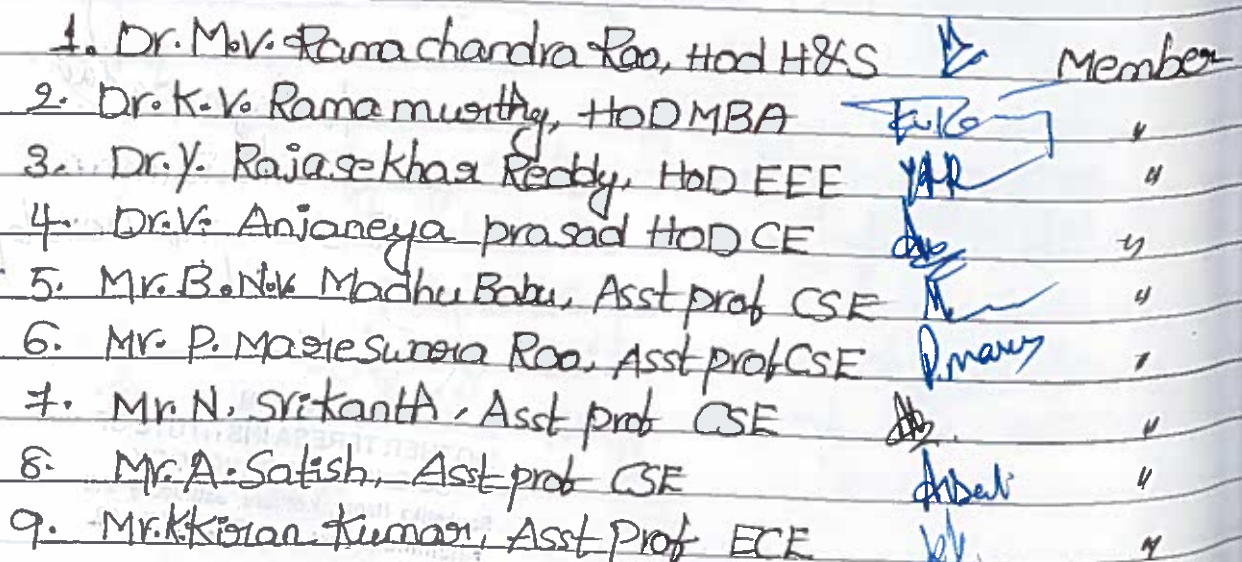 1. Dr. M.V. Rama chandra Rao, Hod H&S Member
2. Dr. K.V. Rama murthy, HOD MBA "
3. Dr. Y. Rajasekhar Reddy, HoD EEE "
4. Dr. V. Anjaneya prasad HOD CE "
5. Mr. B.N.V. Madhu Babu, Asst prof CSE "
6. Mr. P. Mareswara Rao, Asst prof CSE P.mary "
7. Mr. N. Srikanth, Asst prof CSE "
8. Mr. A. Satish, Asst prof CSE "
9. Mr. K Kiran Kumar, Asst Prof ECE "